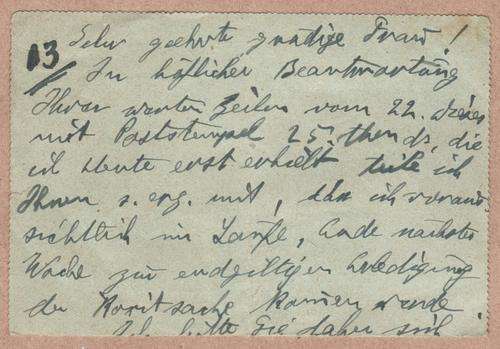 13
Sehr geehrte gnädige Frau!
In höflicher Beantwortung
Ihrer werten Zeilen vom 22. dieses
mit Poststempel 25. ds, die
ich heute erst erhielt teile ich
Ihnen s. erg. mit, ich voraus
sichtlich im Laufe, Ende nächster
Woche zur endgiltigen Erledigung
der kommen werde.
Ich bitte Sie daher sich